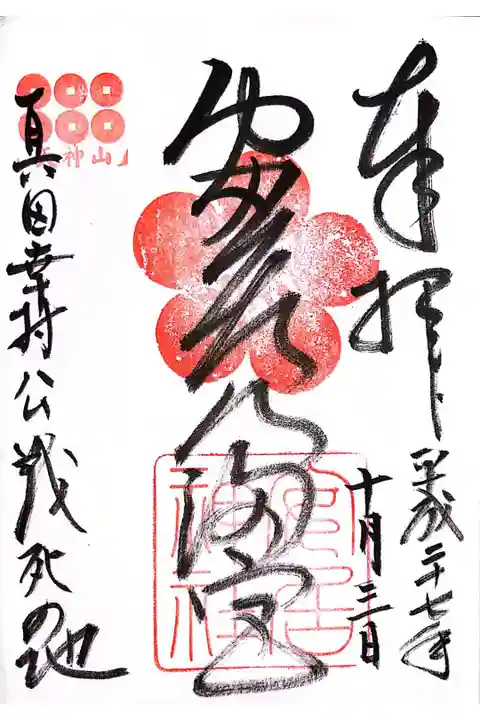 奉拝
平成二十七年
十月三日
安居天満宮
安居
神社
天神山
真田幸村公戦死の地